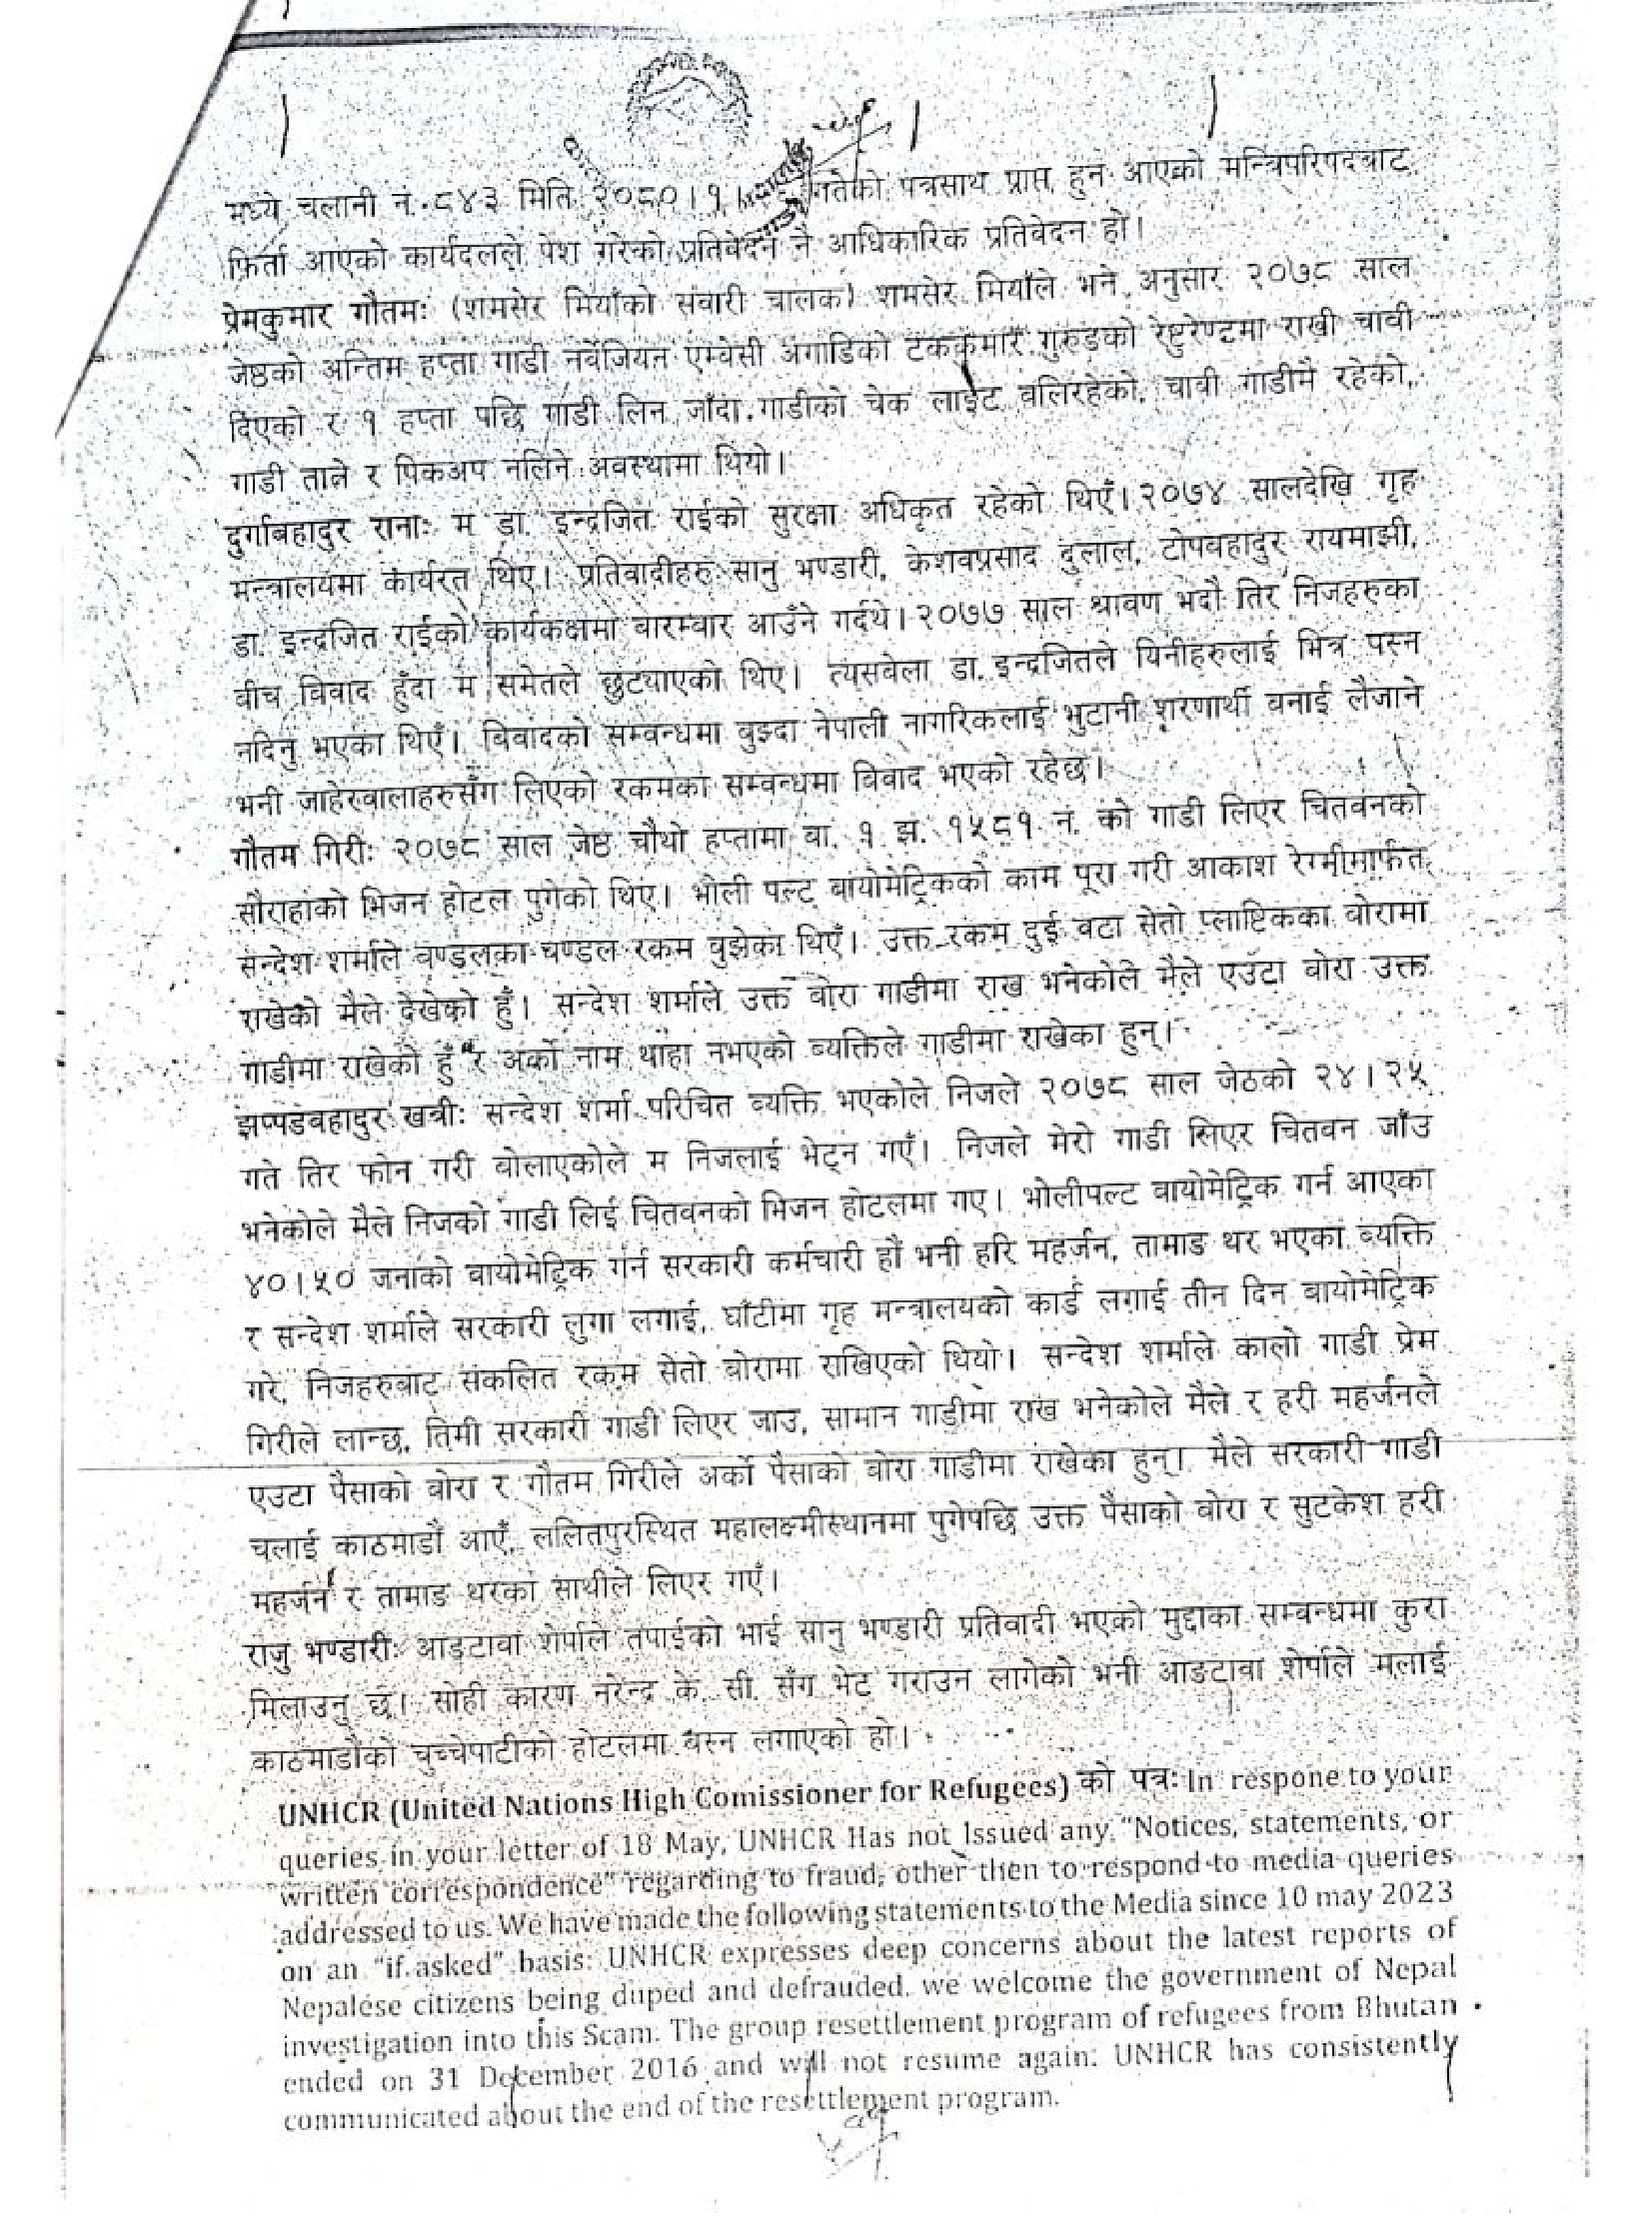 मध्ये चलानी नं.८४३ मिति २०८०।१। गतेको पत्रसाथ प्राप्त हुन आएको मन्त्रिपरिषदबाट
फिर्ता आएको कार्यदलले पेश गरेको प्रतिवेदन नै आधिकारिक प्रतिवेदन हो।
प्रेमकुमार गौतमः (शमसेर मियाँको सवारी चालक) शमसेर मियाँले भने अनुसार २०७८ साल
जेष्ठको अन्तिम हप्ता गाडी नर्वेजियन एम्वेसी अगाडिको टेककुमार गुरुङको रेष्टुरेण्टमा राखी चावी
दिएको र १ हप्ता पछि गाडी लिन जाँदा गाडीको चेक लाईट वलिरहेको, चावी गाडीमै रहेको,
गाडी तान्ने र पिकअप नलिने अवस्थामा थियो।
दुर्गाबहादुर रानाः म डा. इन्द्रजित राईको सुरक्षा अधिकृत रहेको थिएँ। २०७४ सालदेखि गृह
मन्त्रालयमा कार्यरत थिए। प्रतिवादीहरु सानु भण्डारी, केशवप्रसाद दुलाल, टोपबहादुर रायमाझी,
डा. इन्द्रजित राईको कार्यकक्षमा बारम्वार आउँने गर्दथे। २०७७ साल श्रावण भदौ तिर निजहरुका
वीच विवाद हुँदा म समेतले छुट्याएको थिए। त्यसवेला डा. इन्द्रजितले यिनीहरुलाई भित्र पस्न
नदिनु भएका थिएँ। विवादको सम्वन्धमा वुझ्दा नेपाली नागरिकलाई भुटानी शरणार्थी वनाई लैजाने
भनी जाहेरवालाहरुसँग लिएको रकमका सम्वन्धमा विवाद भएको रहेछ।
गौतम गिरीः २०७८ साल जेष्ठ चौथो हप्तामा बा. १ झ. १५८१ नं. को गाडी लिएर चितवनको
सौराहाको भिजन होटल पुगेको थिए। भोली पल्ट बायोमेट्रिकको काम पूरा गरी आकाश रेग्मीमार्फत
सन्देश शर्माले वण्डलका वण्डल रकम वुझेका थिएँ। उक्त रकम दुई वटा सेतो प्लाष्टिकका वोरामा
राखेको मैले देखेको हुँ। सन्देश शर्माले उक्त वोरा गाडीमा राख भनेकोले मैले एउँटा वोरा उक्त
गाडीमा राखेको हुँ र अर्को नाम थाहा नभएको व्यक्तिले गाडीमा राखेका हुन्।
झप्पडबहादुर खत्रीः सन्देश शर्मा परिचित व्यक्ति भएकोले निजले २०७८ साल जेठको २४।२५
गते तिर फोन गरी बोलाएकोले म निजलाई भेट्न गएँ। निजले मेरो गाडी लिएर चितवन जाँउ
भनेकोले मैले निजको गाडी लिई चितवनको भिजन होटलमा गए। भोलीपल्ट वायोमेट्रिक गर्न आएका
४०।५० जनाको वायोमेट्रिक गर्न सरकारी कर्मचारी हौ भनी हरि महर्जन, तामाङ थर भएका व्यक्ति
र सन्देश शर्माले सरकारी लुगा लगाई, घाँटीमा गृह मन्त्रालयको कार्ड लगाई तीन दिन बायोमेट्रिक
गरे, निजहरुबाट संकलित रकम सेतो बोरामा राखिएको थियो। सन्देश शर्माले कालो गाडी प्रेम
गिरीले लान्छ, तिमी सरकारी गाडी लिएर जाउ, सामान गाडीमा राख भनेकोले मैले र हरी महर्जनले
एउटा पैसाको बोरा र गौतम गिरीले अर्को पैसाको वोरा गाडीमा राखेका हुन्। मैले सरकारी गाडी
चलाई काठमाडौं आएँ, ललितपुरस्थित महालक्ष्मीस्थानमा पुगेपछि उक्त पैसाको वोरा र सुटकेश हरी
महर्जन र तामाङ थरका साथीले लिएर गएँ।
राजु भण्डारीः आङटावा शेर्पाले तपाईको भाई सानु भण्डारी प्रतिवादी भएको मुद्दाका सम्वन्धमा कुरा
मिलाउनु छ। सोही कारण नरेन्द्र के. सी. सँग भेट गराउन लागेको भनी आङटावा शेर्पाले मलाई
काठमाडौंको चुच्चेपाटीको होटलमा वस्न लगाएको हो।
UNHCR (United Nations High Comissioner for Refugees) को पत्रः In respone to your
queries in your letter of 18 May, UNHCR Has not Issued any "Notices, statements, or
written correspondence" regarding to fraud, other then to respond to media queries
addressed to us. We have made the following statements to the Media since 10 may 2023
on an "if asked" basis: UNHCR expresses deep concerns about the latest reports of
Nepalese citizens being duped and defrauded. we welcome the government of Nepal
investigation into this Scam. The group resettlement program of refugees from Bhutan
ended on 31 December 2016 and will not resume again. UNHCR has consistently
communicated about the end of the resettlement program.